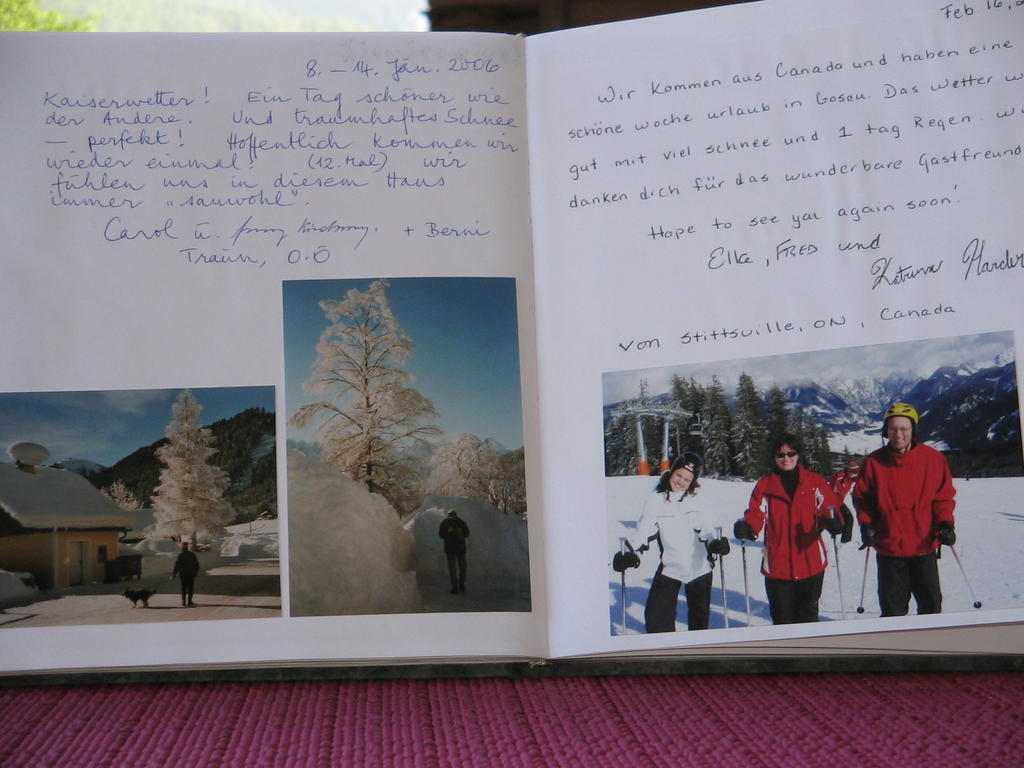 8. – 14. Jän. 2006
Kaiserwetter! Ein Tag schöner wie
der Andere. Und traumhaftes Schnee
– perfekt! Hoffentlich kommen wir
wieder einmal! (12. Mal) wir
fühlen uns in diesem Haus
immer "sauwohl".
Carol u. + Berni
Traun, O.Ö
Feb 16,
Wir kommen aus Canada und haben eine
schöne woche urlaub in Gosau. Das wetter w
gut mit viel schnee und 1 tag Regen. wi
danken dich für das wunderbare Gastfreund
Hope to see you again soon!
Elke, FRED und
Katrina Harder
von Stittsville, ON, Canada